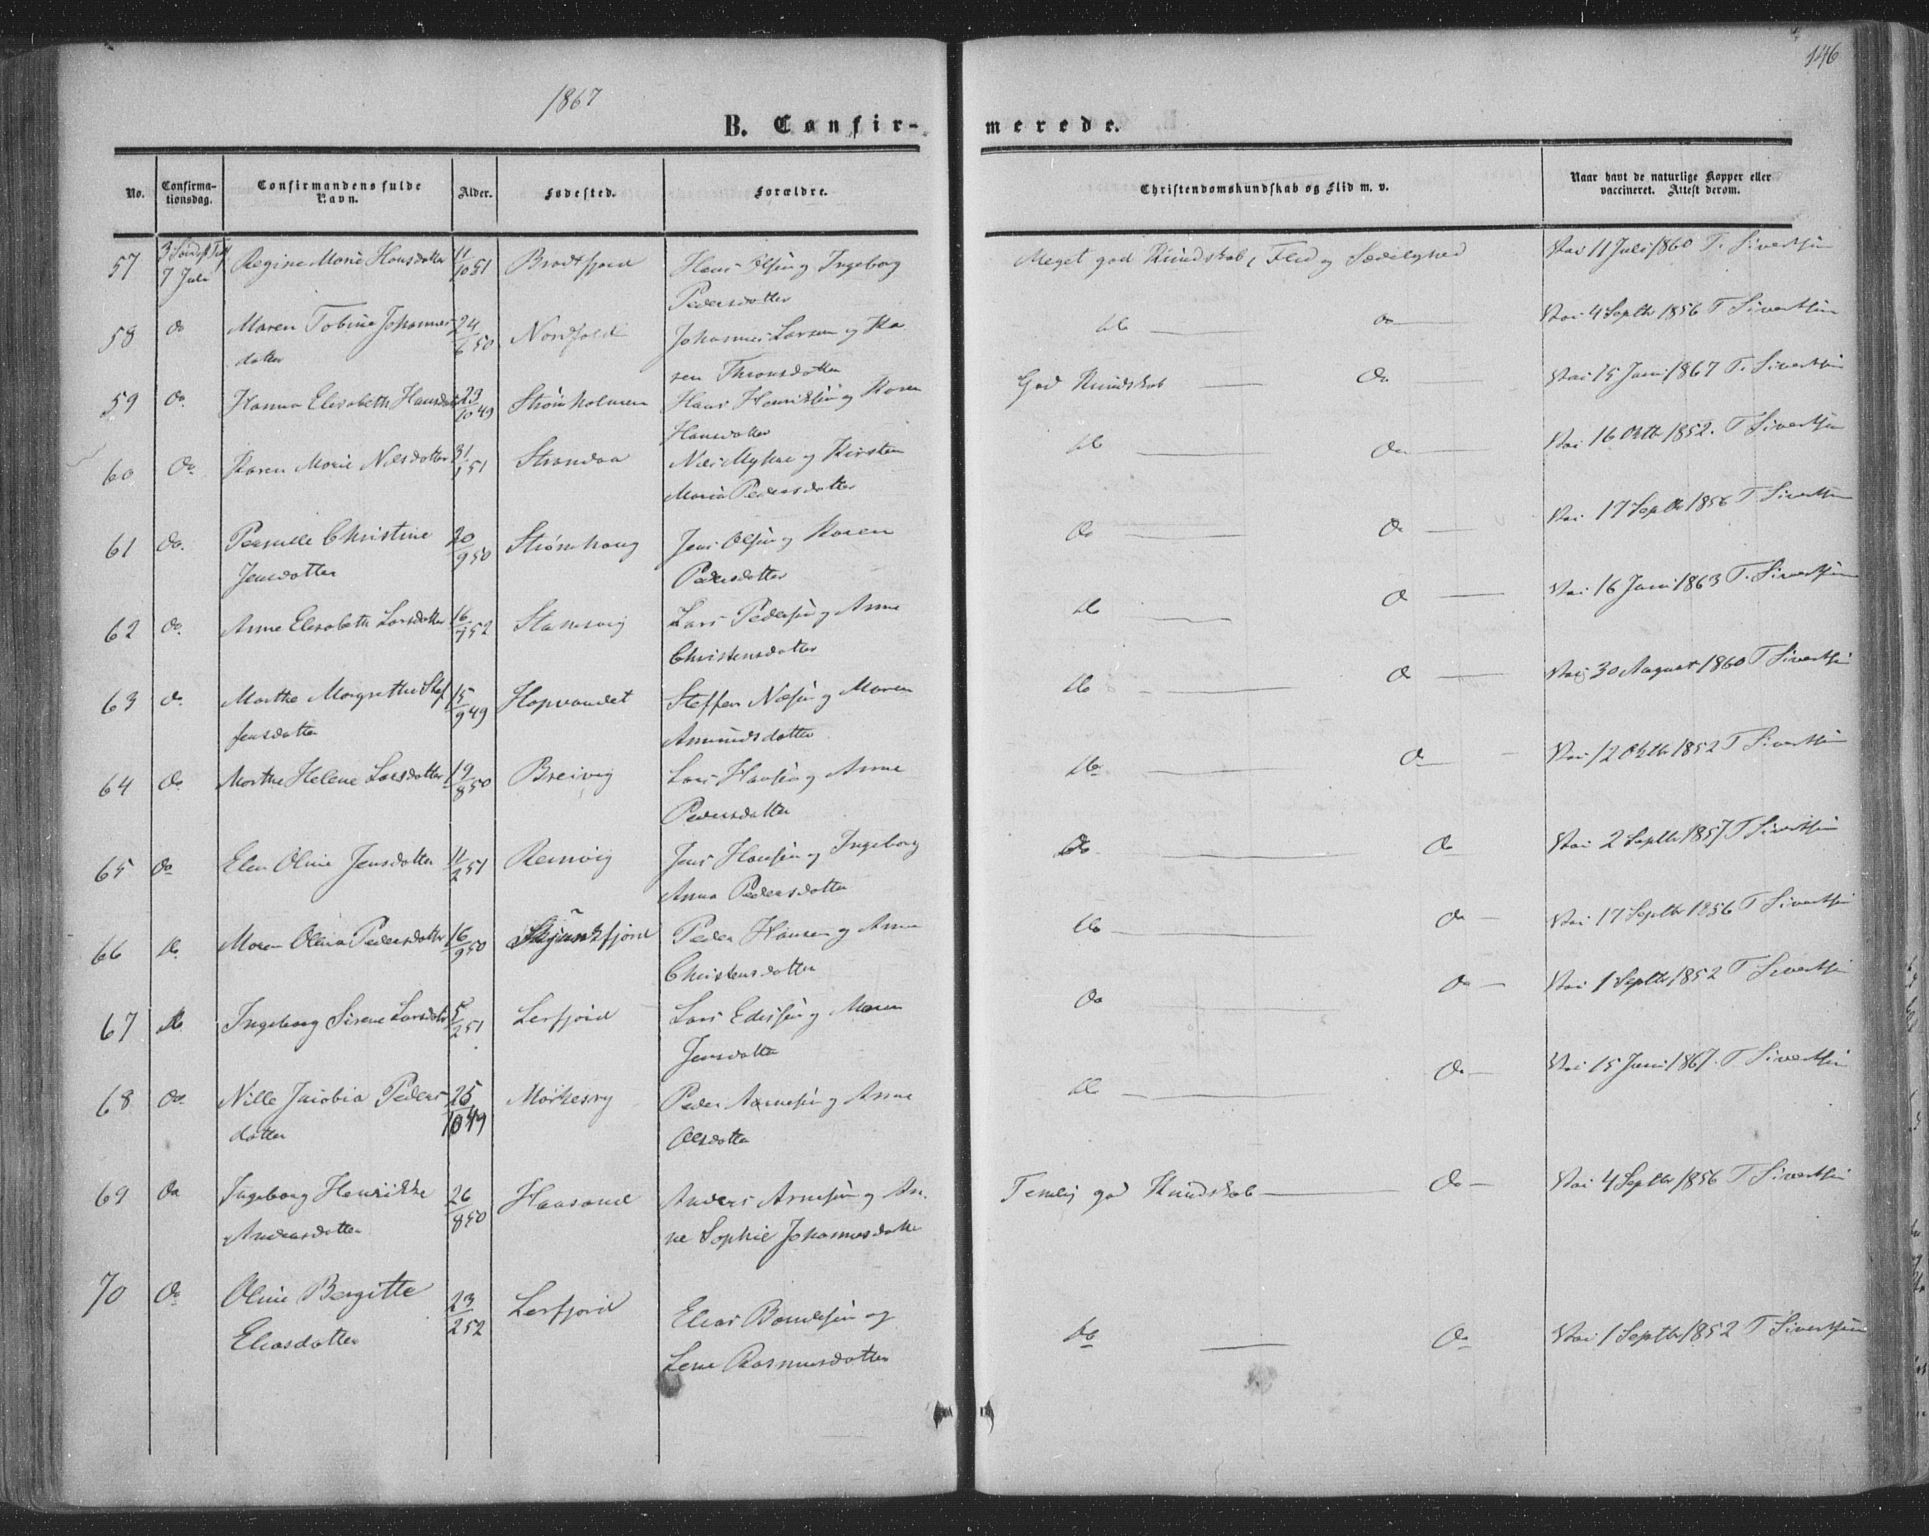 146
1867
B. Confir- merede.
No. Confirma-tionsdag. Confirmandens fulde Navn. Alder. Fødested. Forældre. Christendomskundskab og Flid m. v. Naar havt de naturlige Kopper eller vaccineret. Attest derom.
57 7 Juli Regine Marie Hansdatter 11/10 51 Hans Olsen og Ingeborg Meget god Kundskab, Flid og Sædelighed Vac 11 Juli 1860 T. Sivertsen
Pedersdatter
58 do Maren Tobine Johannes 24/6 50 Nordfold Johannes Larsen og Ka do do Vac 4 Septbr 1856 T Sivertsen
datter ren Thronsdatter
59 do Hanna Elisabeth Hansdatter 23/10 49 Strømholmen Hans Henriksen og Karen God Kundskab do Vac 15 Juni 1867 T. Sivertsen
Hansdatter
60 do Karen Marie Nilsdatter 31/1 51 Strandaa og Kirsten do do Vac 16 Octbr 1852. T Sivertsen
Maria Pedersdatter
61 do. Pernille Christine 20/9 50 Strømhaug Jens Olsen og Karen do do Vac 17 Septbr 1856 T. Sivertsen
Jensdatter Pedersdatter
62 do. Anne Elisabeth Larsdatter 16 52 Stamsvig Lars Pedersen og Anne do do Vac 16 Juni 1863 T. Sivertsen
Christensdatter
63 do Marthe Margrethe Stef 15/9 49 Hopvandet Steffen Nilsen og Maren do do Vac 30 August 1860 T Sivertsen
fensdatter Amundsdatter
64 do Marthe Helene Larsdatter 19/8 50 Breivig Lars Hansen og Anne do do Vac 12 Octbr 1852 T Sivertsen
Pedersdatter
65 do Elen Oline Jensdatter 11/2 51 Reinvig Jens Hansen og Ingeborg do do Vac 2 Septbr 1857 T Sivertsen
Anna Pedersdatter
66 do Maren Olina Pedersdatter 16/9 50 Peder Hansen og Anne do do Vac 17 Septbr 1856 T Sivertsen
Christensdatter
67 do Ingeborg Sirene Larsdatter 5/2 51 Lerfjord Lars Edissen og Maren do do Vac 1 Septbr 1852 T Sivertsen
Jensdatter
68 do Nille Jacobia Peders 25/10 49 Mørkesvig Peder Arnesen og Anne do do Vac 15 Juni 1867. T. Sivertsen
datter Olsdatter
69 do Ingeborg Henrikke 26/8 50 Haasand Anders Arnesen og An- Temlig god Kundskab do Vac 4 Septbr 1856 T Sivertsen
Andersdatter ne Sophie Johannesdatter
70 do Oline Bergitte 23/2 52 Lerfjord Elias og do do Vac 1 Septbr 1852 T Sivertsen
Eliasdatter Lene Rasmusdatter